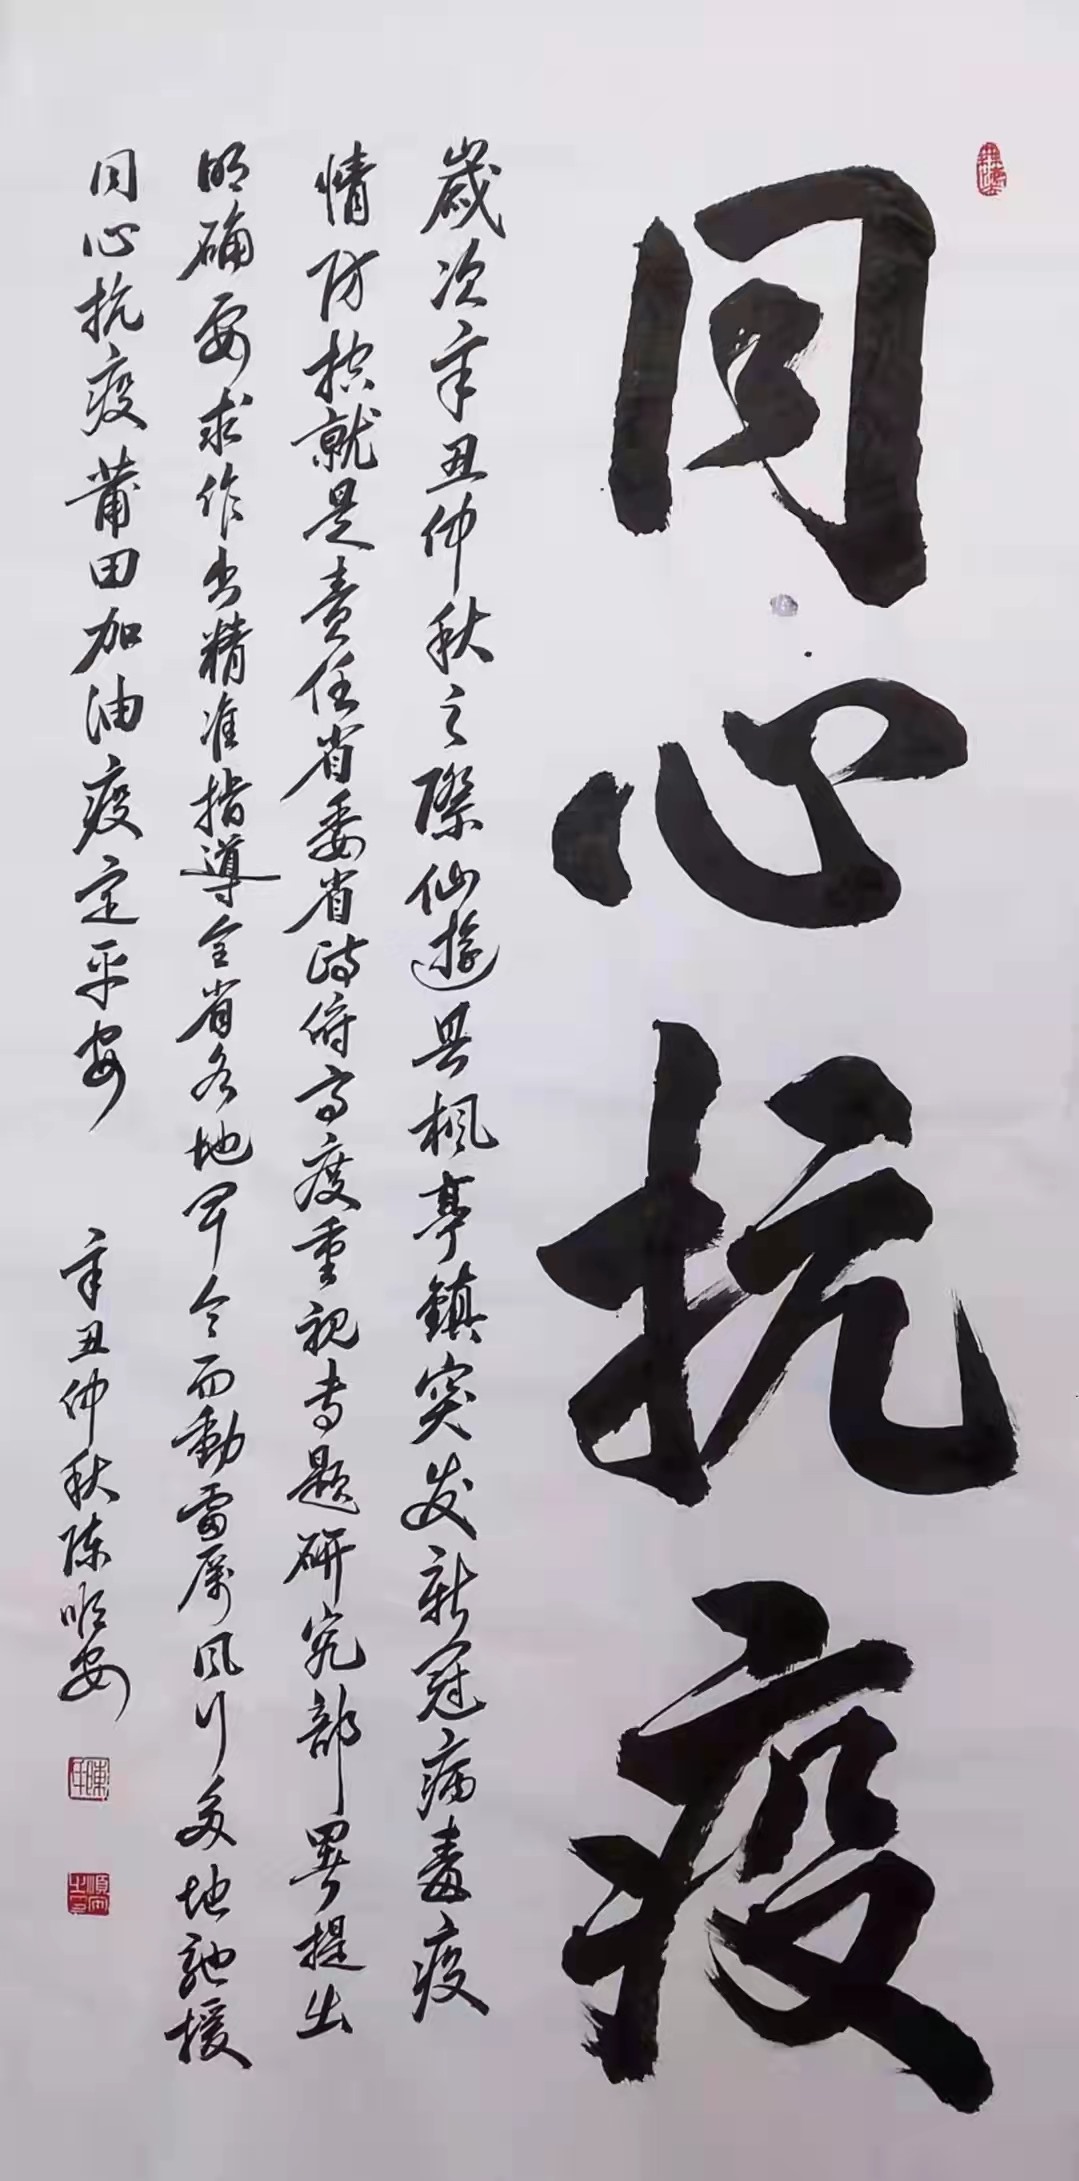 同心抗疫
歲次辛丑仲秋之際仙遊县枫亭鎮突发新冠病毒疫
情防控就是責任省委省政府高度重视专题研究部署提出
明确要求作出精准指導全省各地闻令而動雷厉风行多地驰援
同心抗疫莆田加油疫定平安
辛丑仲秋陈顺安